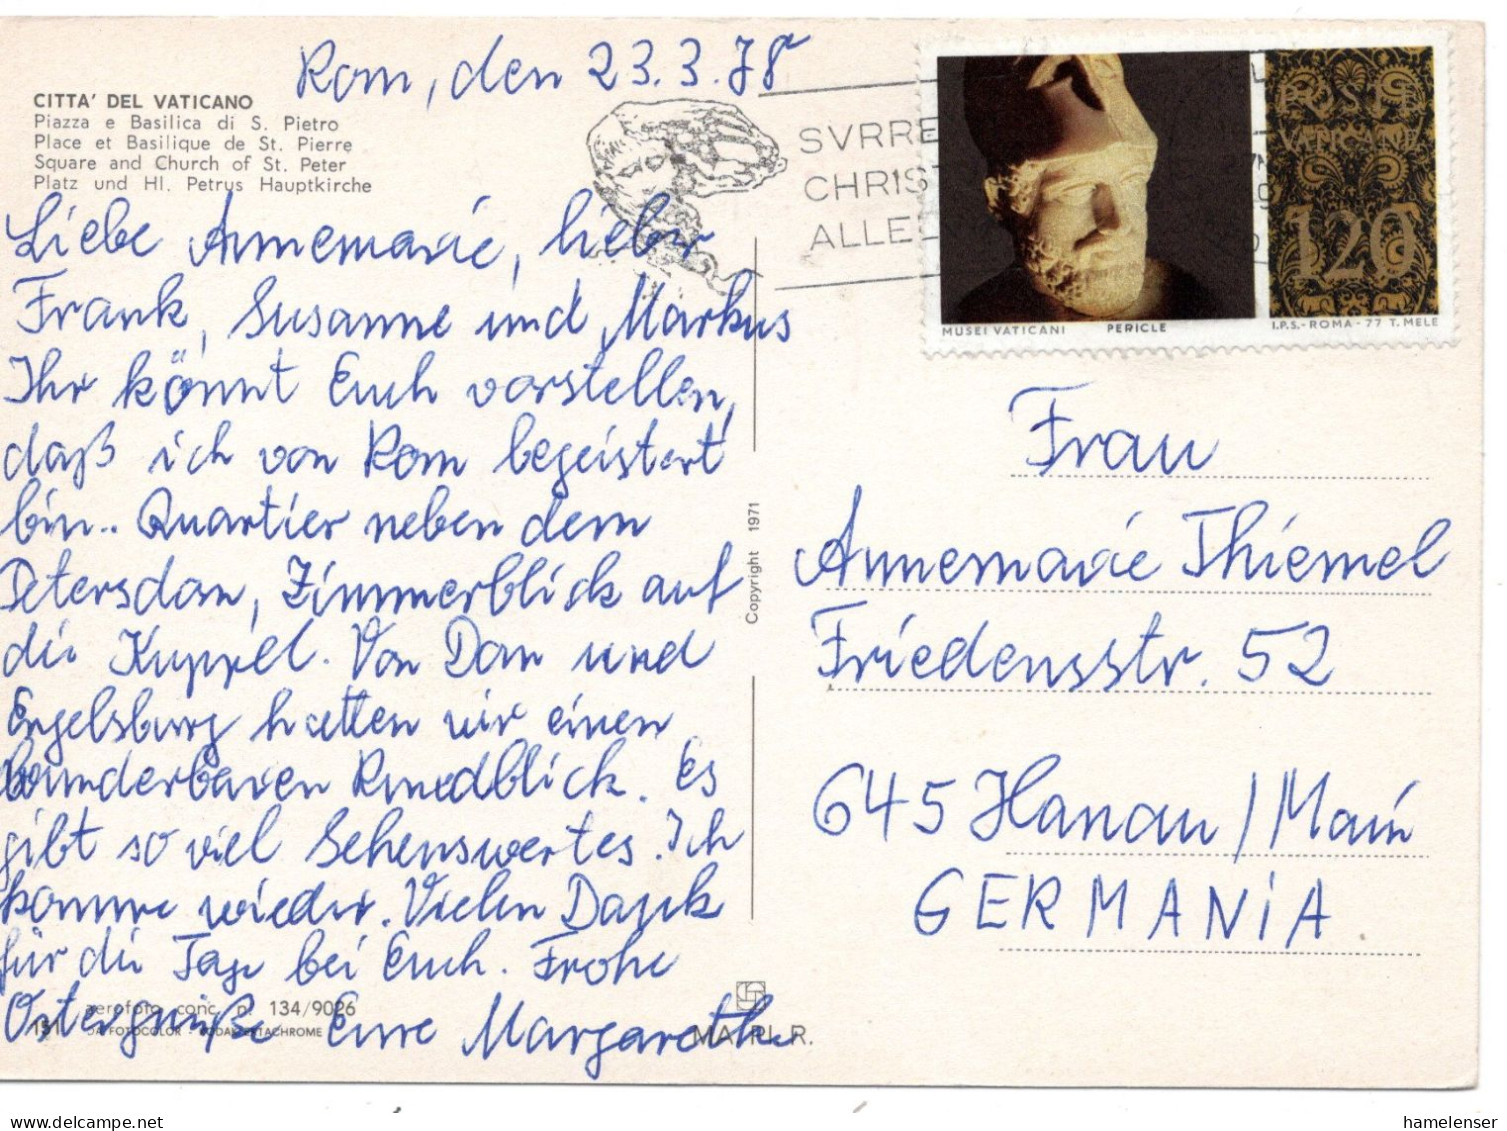 Rom, den 23.3.78
CITTA' DEL VATICANO
Piazza e Basilica di S. Pietro
Place et Basilique de St. Pierre
Square and Church of St. Peter
Platz und Hl. Petrus Hauptkirche
Liebe Annemarie, lieber
Frank, Susanne und Markus
Ihr könnt Euch vorstellen,
daß ich von Rom begeistert
bin.. Quartier neben dem
Petersdom, Zimmerblick auf
die Kuppel. Von Dom und
Engelsburg hatten wir einen
wunderbaren Rundblick. Es
gibt so viel Sehenswertes. Ich
komme wieder. Vielen Dank
für die Tage bei Euch. Frohe
Ostergrüße Eure Margareth
aerofoto conc. n. 134/9026
151
MA.RI. R.
Copyright 1971
SVRRE
CHRIS
ALLE
POSTE
VATICANE
120
MUSEI VATICANI PERICLE I.P.S.-ROMA-77 T. MELE
Frau
Annemarie Thiemel
Friedensstr. 52
645 Hanau/Main
GERMANiA
hamelenser